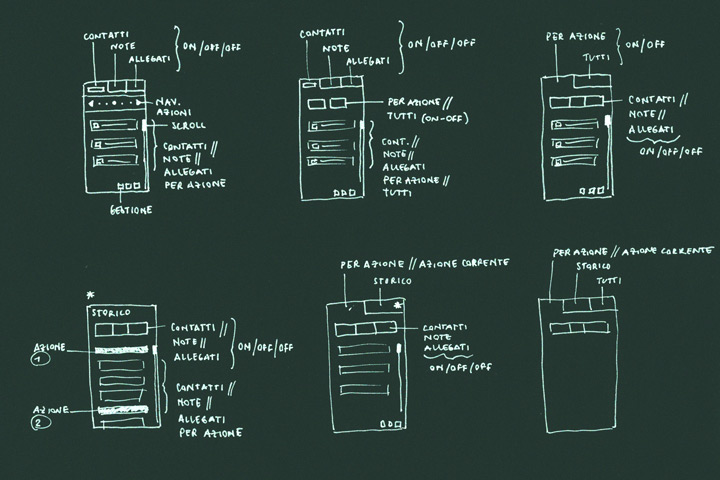 CONTATTI
NOTE
ALLEGATI
ON/OFF/OFF
NAV.
AZIONI
SCROLL
CONTATTI//
NOTE//
ALLEGATI
PER AZIONE
GESTIONE
CONTATTI
NOTE
ALLEGATI
ON/OFF/OFF
PER AZIONE//
TUTTI (ON-OFF)
CONT.//
NOTE//
ALLEGATI
PER AZIONE//
TUTTI
PER AZIONE
TUTTI
ON/OFF
CONTATTI//
NOTE//
ALLEGATI
ON/OFF/OFF
*
STORICO
CONTATTI//
NOTE//
ALLEGATI
ON/OFF/OFF
AZIONE
1
CONTATTI//
NOTE//
ALLEGATI
PER AZIONE
AZIONE
2
PER AZIONE//AZIONE CORRENTE
STORICO
*
CONTATTI
NOTE
ALLEGATI
ON/OFF/OFF
PER AZIONE//AZIONE CORRENTE
STORICO
TUTTI